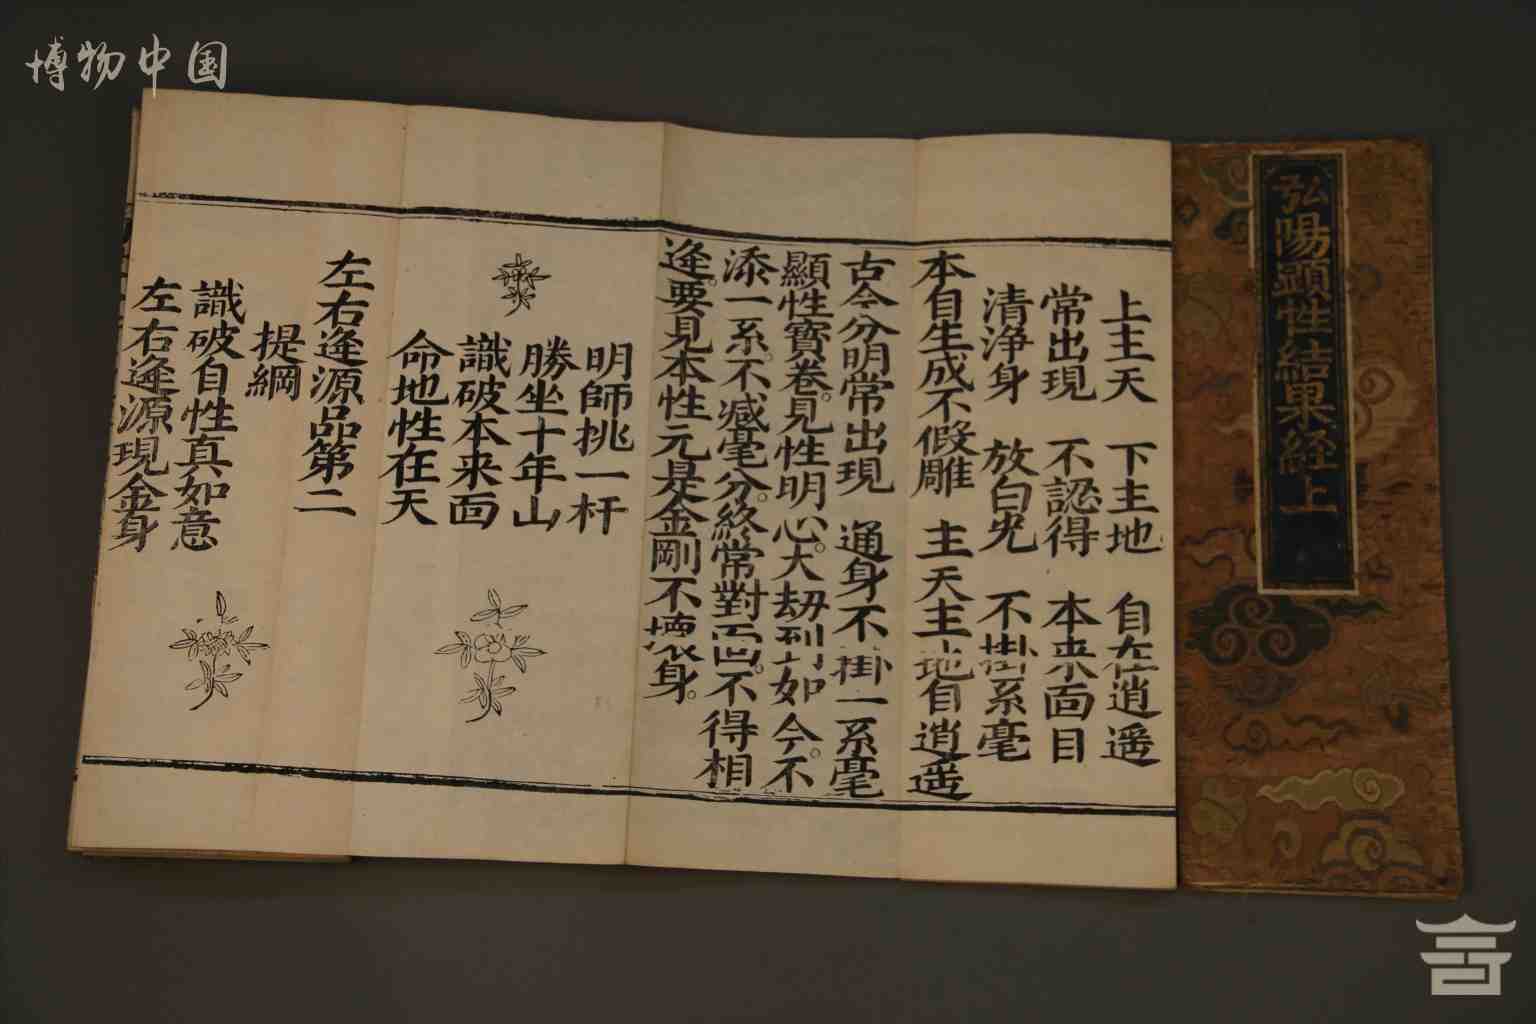 博物中国
弘陽顕性結果経上
上主天　下主地　自在逍遥
常出現　不認得　本来面目
清浄身　放白光　不掛系毫
本自生成不假雕　主天主地自逍遥
古今分明常出現　通身不掛一系毫
顯性寳卷。見性明心。大劫到如今。不
添一系。不减毫分。終常對面。不得相
逢。要見本性元是金剛不壊身。
明師挑一杆
勝坐十年山
識破本来面
命地性在天
左右逢源品第二
提綱
識破自性真如意
左右逢源現金身